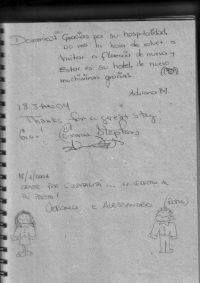 Domenico: Gracias por su hospitalidad,
no veo la hora de volver a
visitar a Florencia de nuevo y
estar en su hotel de nuevo
muchisimas gracias.
Adriana M.
18 JAN 04
Thanks for a great stay.
Stephen
GRAZIE PER L'OSPITALITÀ ... 
PRESTO!
VERONICA E ALESSANDRO (ROMA)